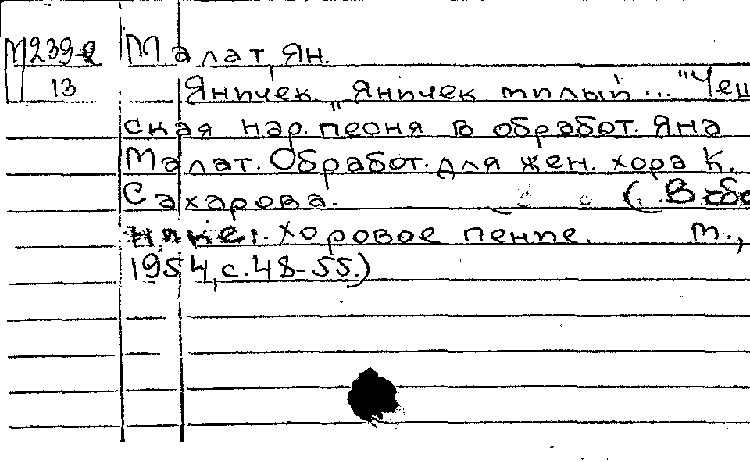 М239-2 Малат, Ян.
13 Янпчек. „Янпчек тплый..." Чеш
ская нар. песня в обработ. Яна
Малат. Обработ. для жен. хора К.
Сахарова. (.В сбо
рнике: Хоровое пенпе. М.,
1954, с.48-55.)